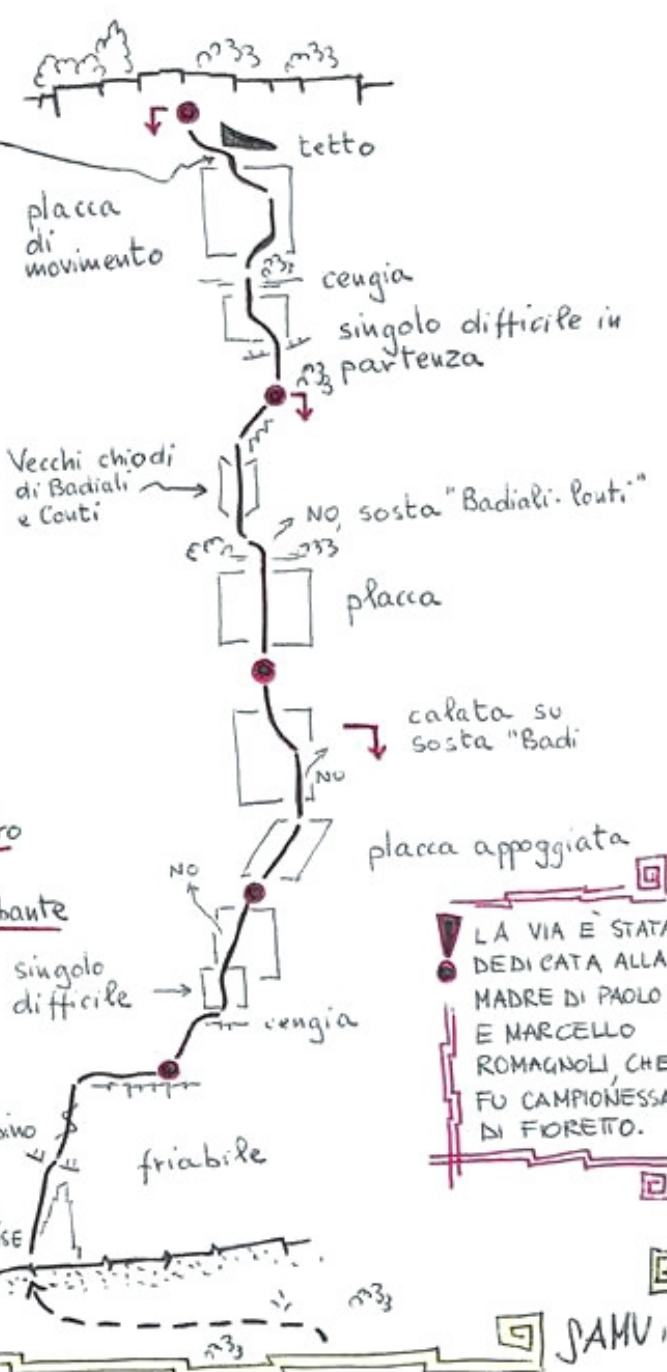 tetto
placca
di
movimento
cengia
singolo difficile in
partenza
Vecchi chiodi
di Badiali
e Conti
NO, sosta "Badiali-Conti"
placca
calata su
sosta "Badi
NO
placca appoggiata
NO
singolo
difficile
cengia
friabile
LA VIA È STATA
DEDICATA ALLA
MADRE DI PAOLO
E MARCELLO
ROMAGNOLI, CHE
FU CAMPIONESSA
DI FIORETTO.